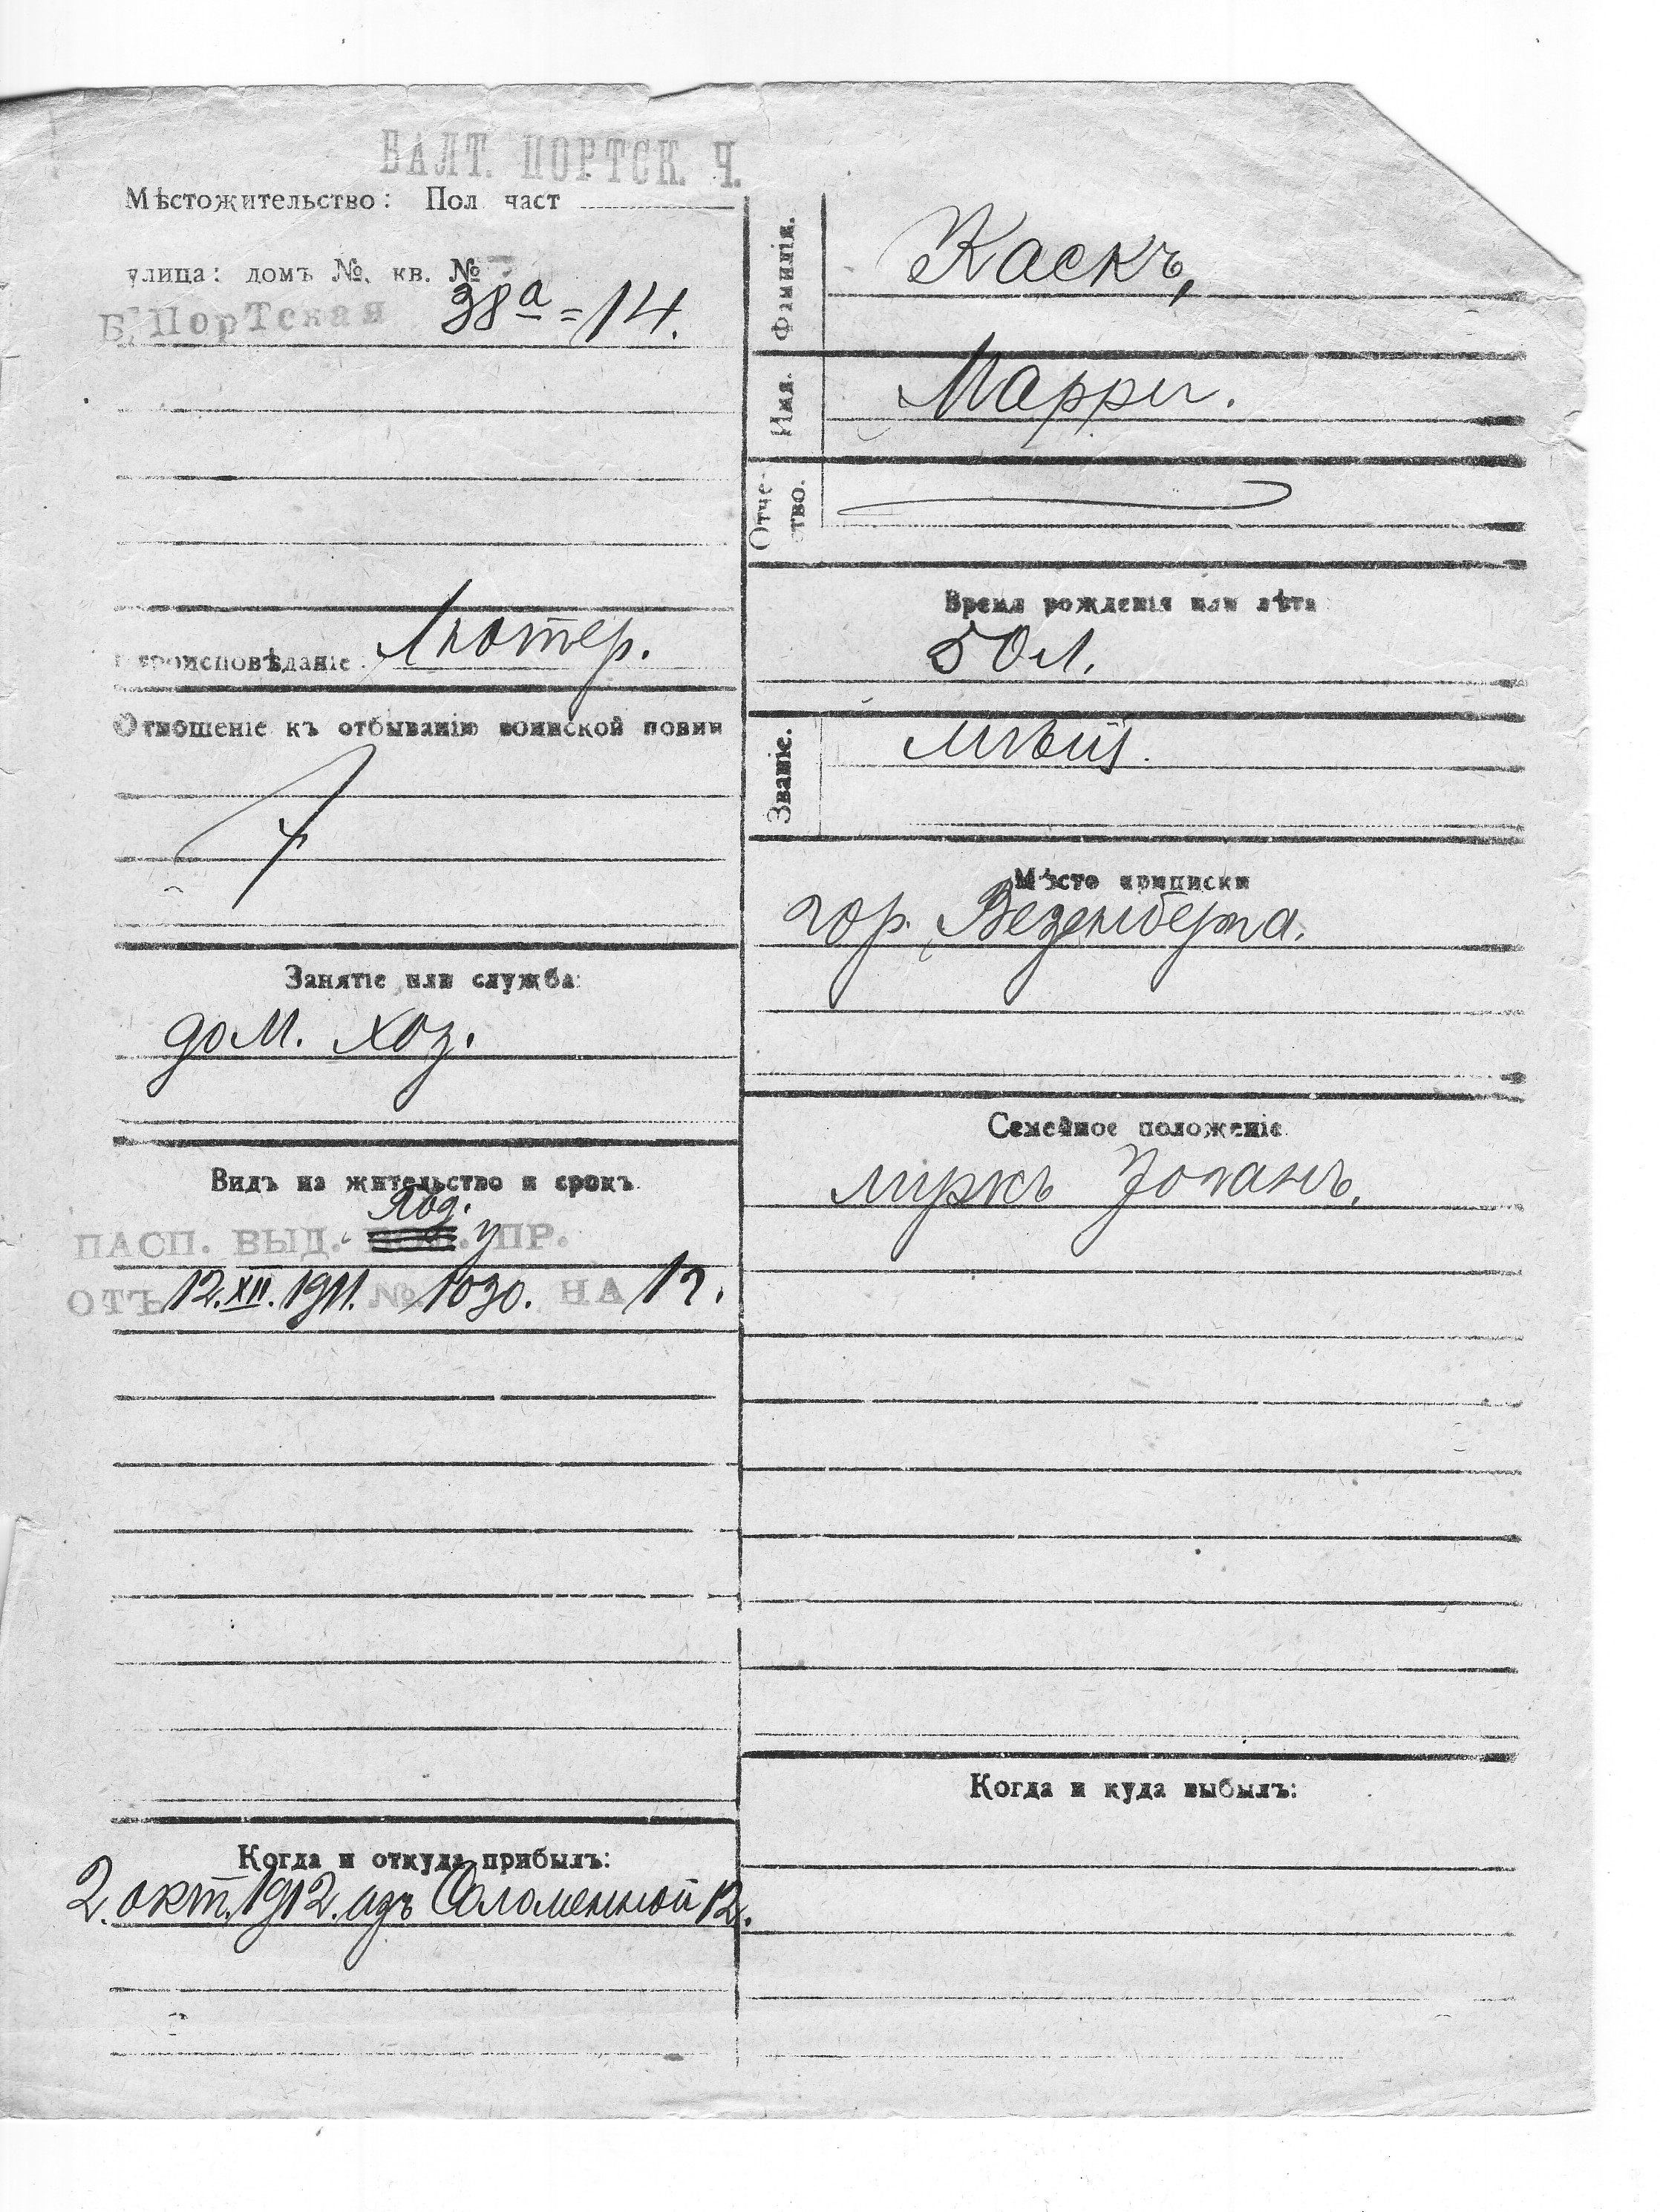 БАЛТ. ПОРТСК. Ч.
Мѣстожительство: Пол част
улица: домъ №, кв. №
Б. Портская 38а = 14.
вѣроисповѣданіе: Лютер.
Отношеніе къ отбыванію воинской повин
Занятіе или служба:
дом. хоз.
Видъ на жительство и срокъ
ПАСП. ВЫД. УПР.
ОТЪ 12. XII. 1911. № 1030. НА 1 г.
Когда и откуда прибылъ:
2. окт. 1912. изъ Соломенной 12.
Фамилія. Каскъ,
Имя. Марри.
Отчество.
Время рожденія или лѣта
50 л.
Званіе. мѣщ.
Мѣсто приписки
гор. Везенберга.
Семейное положеніе
мужъ Іоганъ.
Когда и куда выбылъ: